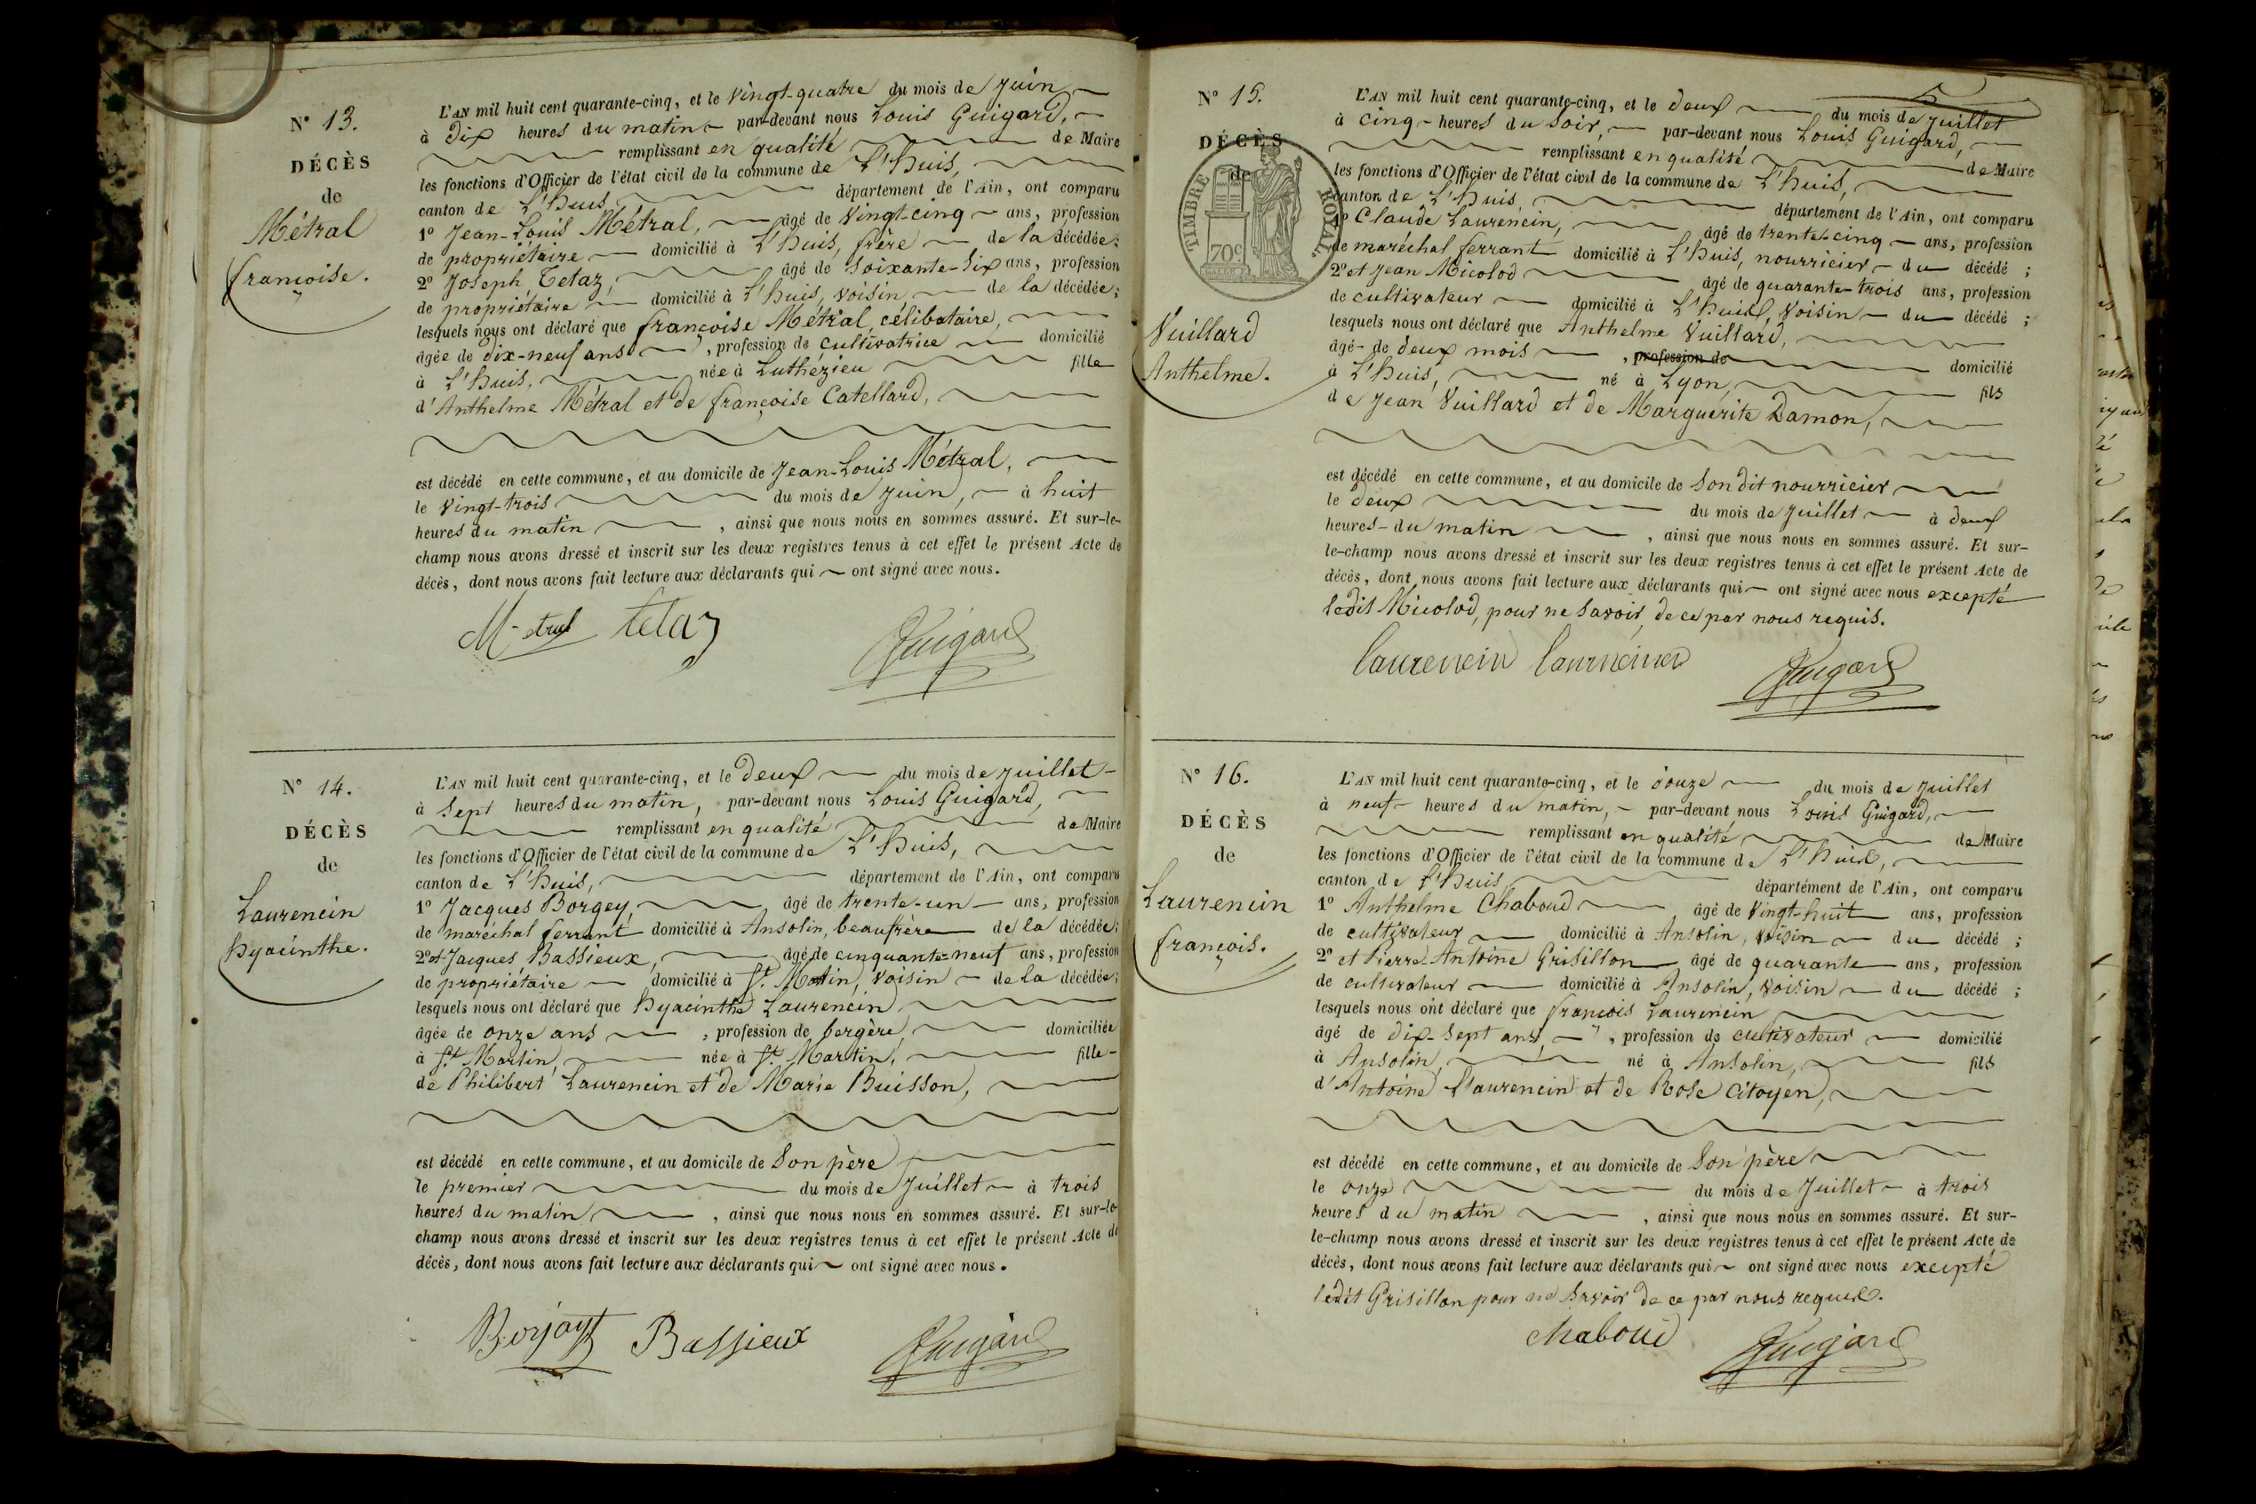 N° 13.
DÉCÈS
de
Métral
françoise.
L'AN mil huit cent quarante-cinq, et le vingt-quatre du mois de juin
à dix heures du matin par-devant nous Louis Guigard,
remplissant en qualité de Maire
les fonctions d'Officier de l'état civil de la commune de L'huis,
canton de L'huis, département de l'Ain, ont comparu
1° Jean-Louis Métral, âgé de vingt-cinq ans, profession
de propriétaire domicilié à L'huis, frère de la décédée;
2° Joseph Tetaz, âgé de soixante-six ans, profession
de propriétaire domicilié à L'huis, voisin de la décédée;
lesquels nous ont déclaré que françoise Métral, célibataire,
âgée de dix-neuf ans, profession de cultivatrice domicilié
à L'huis, née à Luthézieu fille
d'Anthelme Métral et de françoise Catellard,
est décédé en cette commune, et au domicile de Jean-Louis Métral,
le vingt-trois du mois de juin, à huit
heures du matin, ainsi que nous nous en sommes assuré. Et sur-le-
champ nous avons dressé et inscrit sur les deux registres tenus à cet effet le présent Acte de
décès, dont nous avons fait lecture aux déclarants qui ont signé avec nous.
Métral Tetaz Guigard
N° 14.
DÉCÈS
de
Laurencin
hyacinthe.
L'AN mil huit cent quarante-cinq, et le deux du mois de juillet
à sept heures du matin, par-devant nous Louis Guigard,
remplissant en qualité de Maire
les fonctions d'Officier de l'état civil de la commune de L'huis,
canton de L'huis, département de l'Ain, ont comparu
1° Jacques Borgey, âgé de trente-un ans, profession
de maréchal ferrant domicilié à Ansolin, beaufrère de la décédée;
2° et Jacques Bassieux, âgé de cinquante-neuf ans, profession
de propriétaire domicilié à St. Martin, voisin de la décédée;
lesquels nous ont déclaré que hyacinthe Laurencin
âgée de onze ans, profession de bergère, domiciliée
à St. Martin, née à St. Martin, fille
de Philibert Laurencin et de Marie Buisson,
est décédé en cette commune, et au domicile de son père
le premier du mois de juillet à trois
heures du matin, ainsi que nous nous en sommes assuré. Et sur-le-
champ nous avons dressé et inscrit sur les deux registres tenus à cet effet le présent Acte de
décès, dont nous avons fait lecture aux déclarants qui ont signé avec nous.
Bassieux Guigard
N° 15.
DÉCÈS
de
TIMBRE ROYAL.
70c
Vuillard
Anthelme.
L'AN mil huit cent quarante-cinq, et le deux du mois de juillet
à cinq heures du soir, par-devant nous Louis Guigard,
remplissant en qualité de Maire
les fonctions d'Officier de l'état civil de la commune de L'huis,
canton de L'huis, département de l'Ain, ont comparu
1° Claude Laurencin, âgé de trente-cinq ans, profession
de maréchal ferrant domicilié à L'huis, nourricier du décédé;
2° et Jean Micolod âgé de quarante-trois ans, profession
de cultivateur domicilié à L'huis, voisin du décédé;
lesquels nous ont déclaré que Anthelme Vuillard,
âgé de deux mois, profession de domicilié
à L'huis, né à Lyon, fils
de Jean Vuillard et de Marguerite Damon,
est décédé en cette commune, et au domicile de son dit nourricier
le deux du mois de juillet à deux
heures du matin, ainsi que nous nous en sommes assuré. Et sur-
le-champ nous avons dressé et inscrit sur les deux registres tenus à cet effet le présent Acte de
décès, dont nous avons fait lecture aux déclarants qui ont signé avec nous excepté
ledit Micolod, pour ne savoir, de ce par nous requis.
Laurencin Guigard
N° 16.
DÉCÈS
de
Laurencin
françois.
L'AN mil huit cent quarante-cinq, et le douze du mois de juillet
à neuf heures du matin, par-devant nous Louis Guigard,
remplissant en qualité de Maire
les fonctions d'Officier de l'état civil de la commune de L'huis,
canton de L'huis, département de l'Ain, ont comparu
1° Anthelme Chaboud âgé de vingt-huit ans, profession
de cultivateur domicilié à Ansolin, voisin du décédé;
2° et Pierre-Antoine Grisillon âgé de quarante ans, profession
de cultivateur domicilié à Ansolin, voisin du décédé;
lesquels nous ont déclaré que françois Laurencin
âgé de dix-sept ans, profession de cultivateur domicilié
à Ansolin, né à Ansolin, fils
d'Antoine Laurencin et de Rose Citoyen,
est décédé en cette commune, et au domicile de son père
le onze du mois de juillet à trois
heures du matin, ainsi que nous nous en sommes assuré. Et sur-
le-champ nous avons dressé et inscrit sur les deux registres tenus à cet effet le présent Acte de
décès, dont nous avons fait lecture aux déclarants qui ont signé avec nous excepté
ledit Grisillon pour ne savoir de ce par nous requis.
Chaboud Guigard